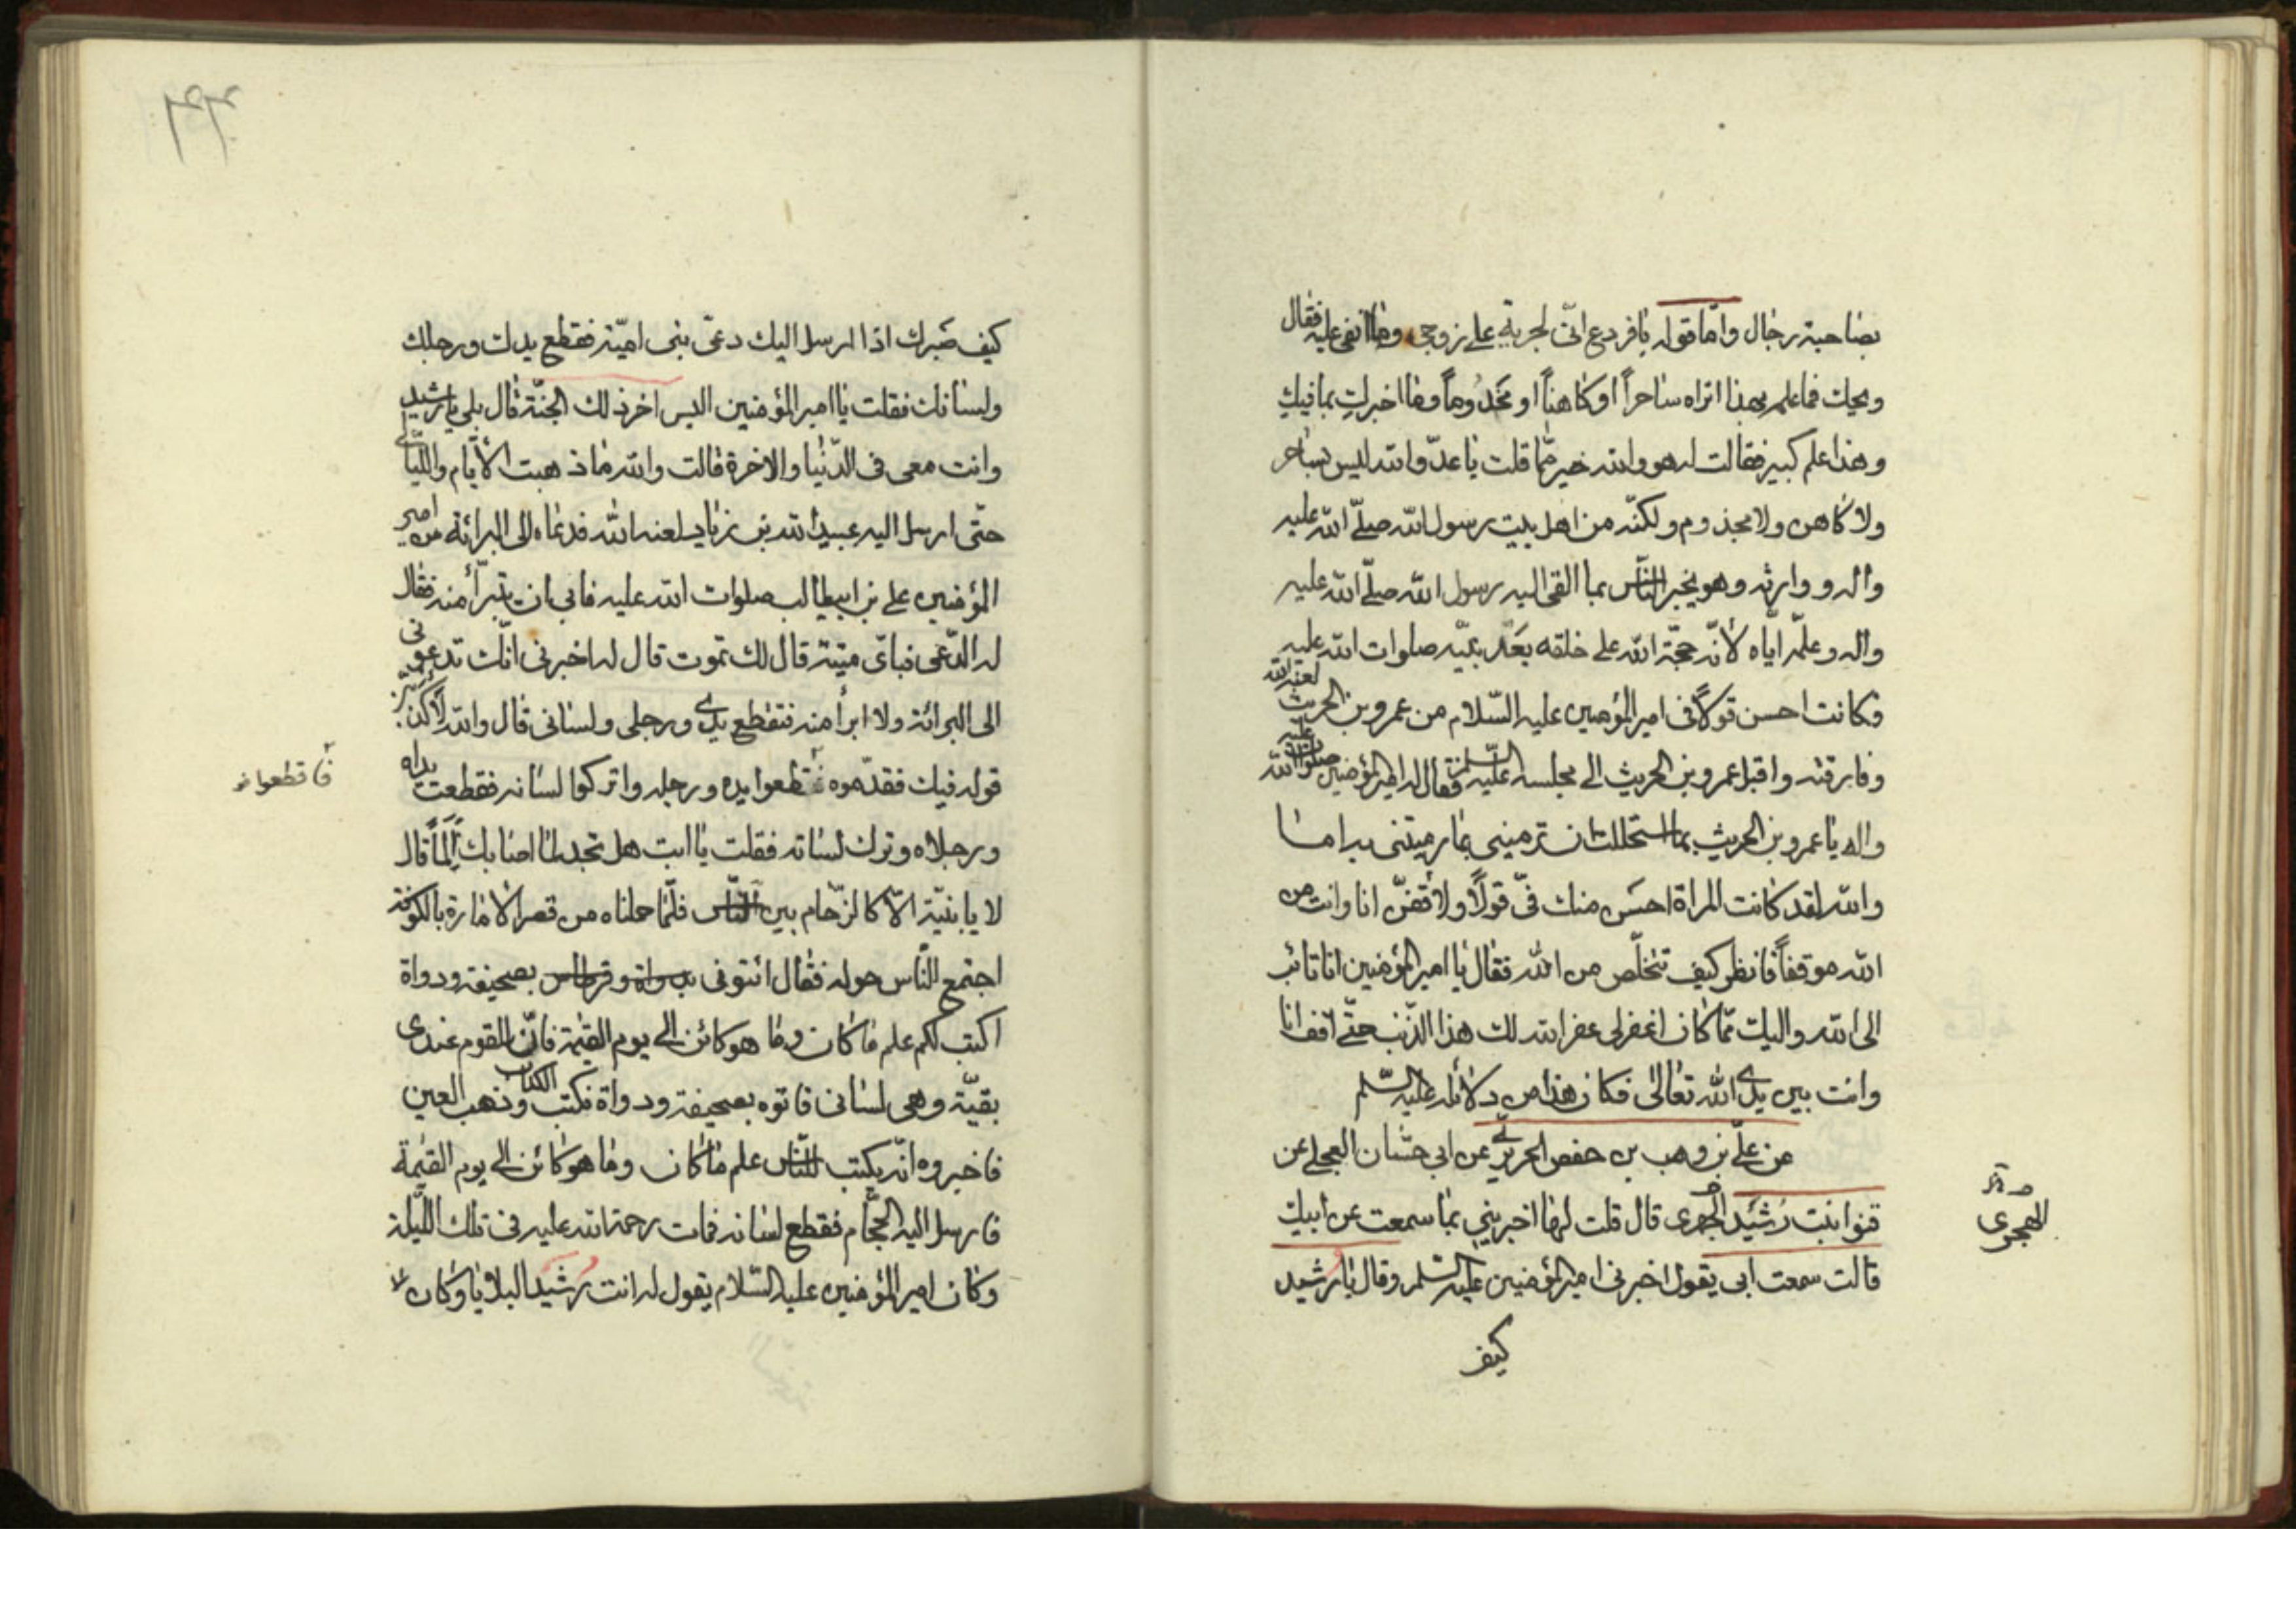 بصاحبة رجال واما قوله يا قردع انى لجرية على زوجى وما انفى عليه فقال
ويحك فما علمه بهذا اتراه ساحراً او كاهناً او مخدوماً وما اخبرك بما فيك
وهذا علم كبير فقالت له هو والله خير مما قلت يا عدو الله ليس بساحر
ولا كاهن ولا مجذوم ولكنه من اهل بيت رسول الله صلى الله عليه
واله و وارثه وهو يخبر الناس بما القى اليه رسول الله صلى الله عليه
واله وعلمه اياه لانه حجة الله على خلقه بعد نبيه صلوات الله عليه
فكانت احسن قولاً فى امير المؤمنين عليه السلام من عمرو بن الحريث لعنه الله
وفارقته واقبل عمرو بن الحريث الى مجلسه عليه السلام فقال له امير المؤمنين صلوات الله عليه
واله يا عمرو بن الحريث بما استحللت ان ترمينى بما رميتنى به اما
والله لقد كانت المراة احسن منك فى قولاً ولاقفن انا وانت من
الله موقفاً فانظر كيف تتخلص من الله فقال يا امير المؤمنين انا تائب
الى الله واليك مما كان اغفر لى غفر الله لك هذا الذنب حتى اقف انا
وانت بين يدى الله تعالى فكان هذا من دلائله عليه السلم
عن على بن وهب بن حفص الحريرى عن ابى حسان العجلى عن
قنوا بنت رشيد الجهرى قال قلت لها اخبرينى بما سمعت عن ابيك
الهجرى
قالت سمعت ابى يقول اخبرنى امير المؤمنين عليه السلم وقال يا رشيد
كيف
كيف صبرك اذا ارسل اليك دعى بنى امية فقطع يدك ورجلك
ولسانك فقلت يا امير المؤمنين اليس اخر ذلك الجنة قال بلى يا رشيد
وانت معى فى الدنيا والاخرة قالت والله ما ذهبت الايام والليالى
حتى ارسل اليه عبيد الله بن زياد لعنه الله فدعاه الى البرائة من امير
المؤمنين على بن ابيطالب صلوات الله عليه فابى ان يتبرأ منه فقال
له الدعى فباى ميتة قال لك تموت قال له اخبرنى انك تدعونى
الى البرائة ولا ابرأ منه فتقطع يدى ورجلى ولسانى قال والله لاكذبن
قوله فيك فقدموه فقطعوا يده ورجله واتركوا لسانه فقطعت يداه
فاقطعوا
ورجلاه وترك لسانه فقلت يا ابت هل تجد لما اصابك الماً قال
لا يا بنية الا كالزحام بين الناس فلما حملناه من قصر الامارة بالكوفة
اجتمع الناس حوله فقال ائتونى بدواة وقرطاس بصحيفة ودواة
اكتب لكم علم ما كان وما هو كائن الى يوم القيمة فان للقوم عندى
بقية وهى لسانى فاتوه بصحيفة ودواة فكتب الكتاب وذهب العين
فاخبروه انه يكتب للناس علم ما كان وما هو كائن الى يوم القيمة
فارسل اليه الحجام فقطع لسانه فمات رحمة الله عليه فى تلك الليلة
وكان امير المؤمنين عليه السلام يقول له انت رشيد البلايا وكان